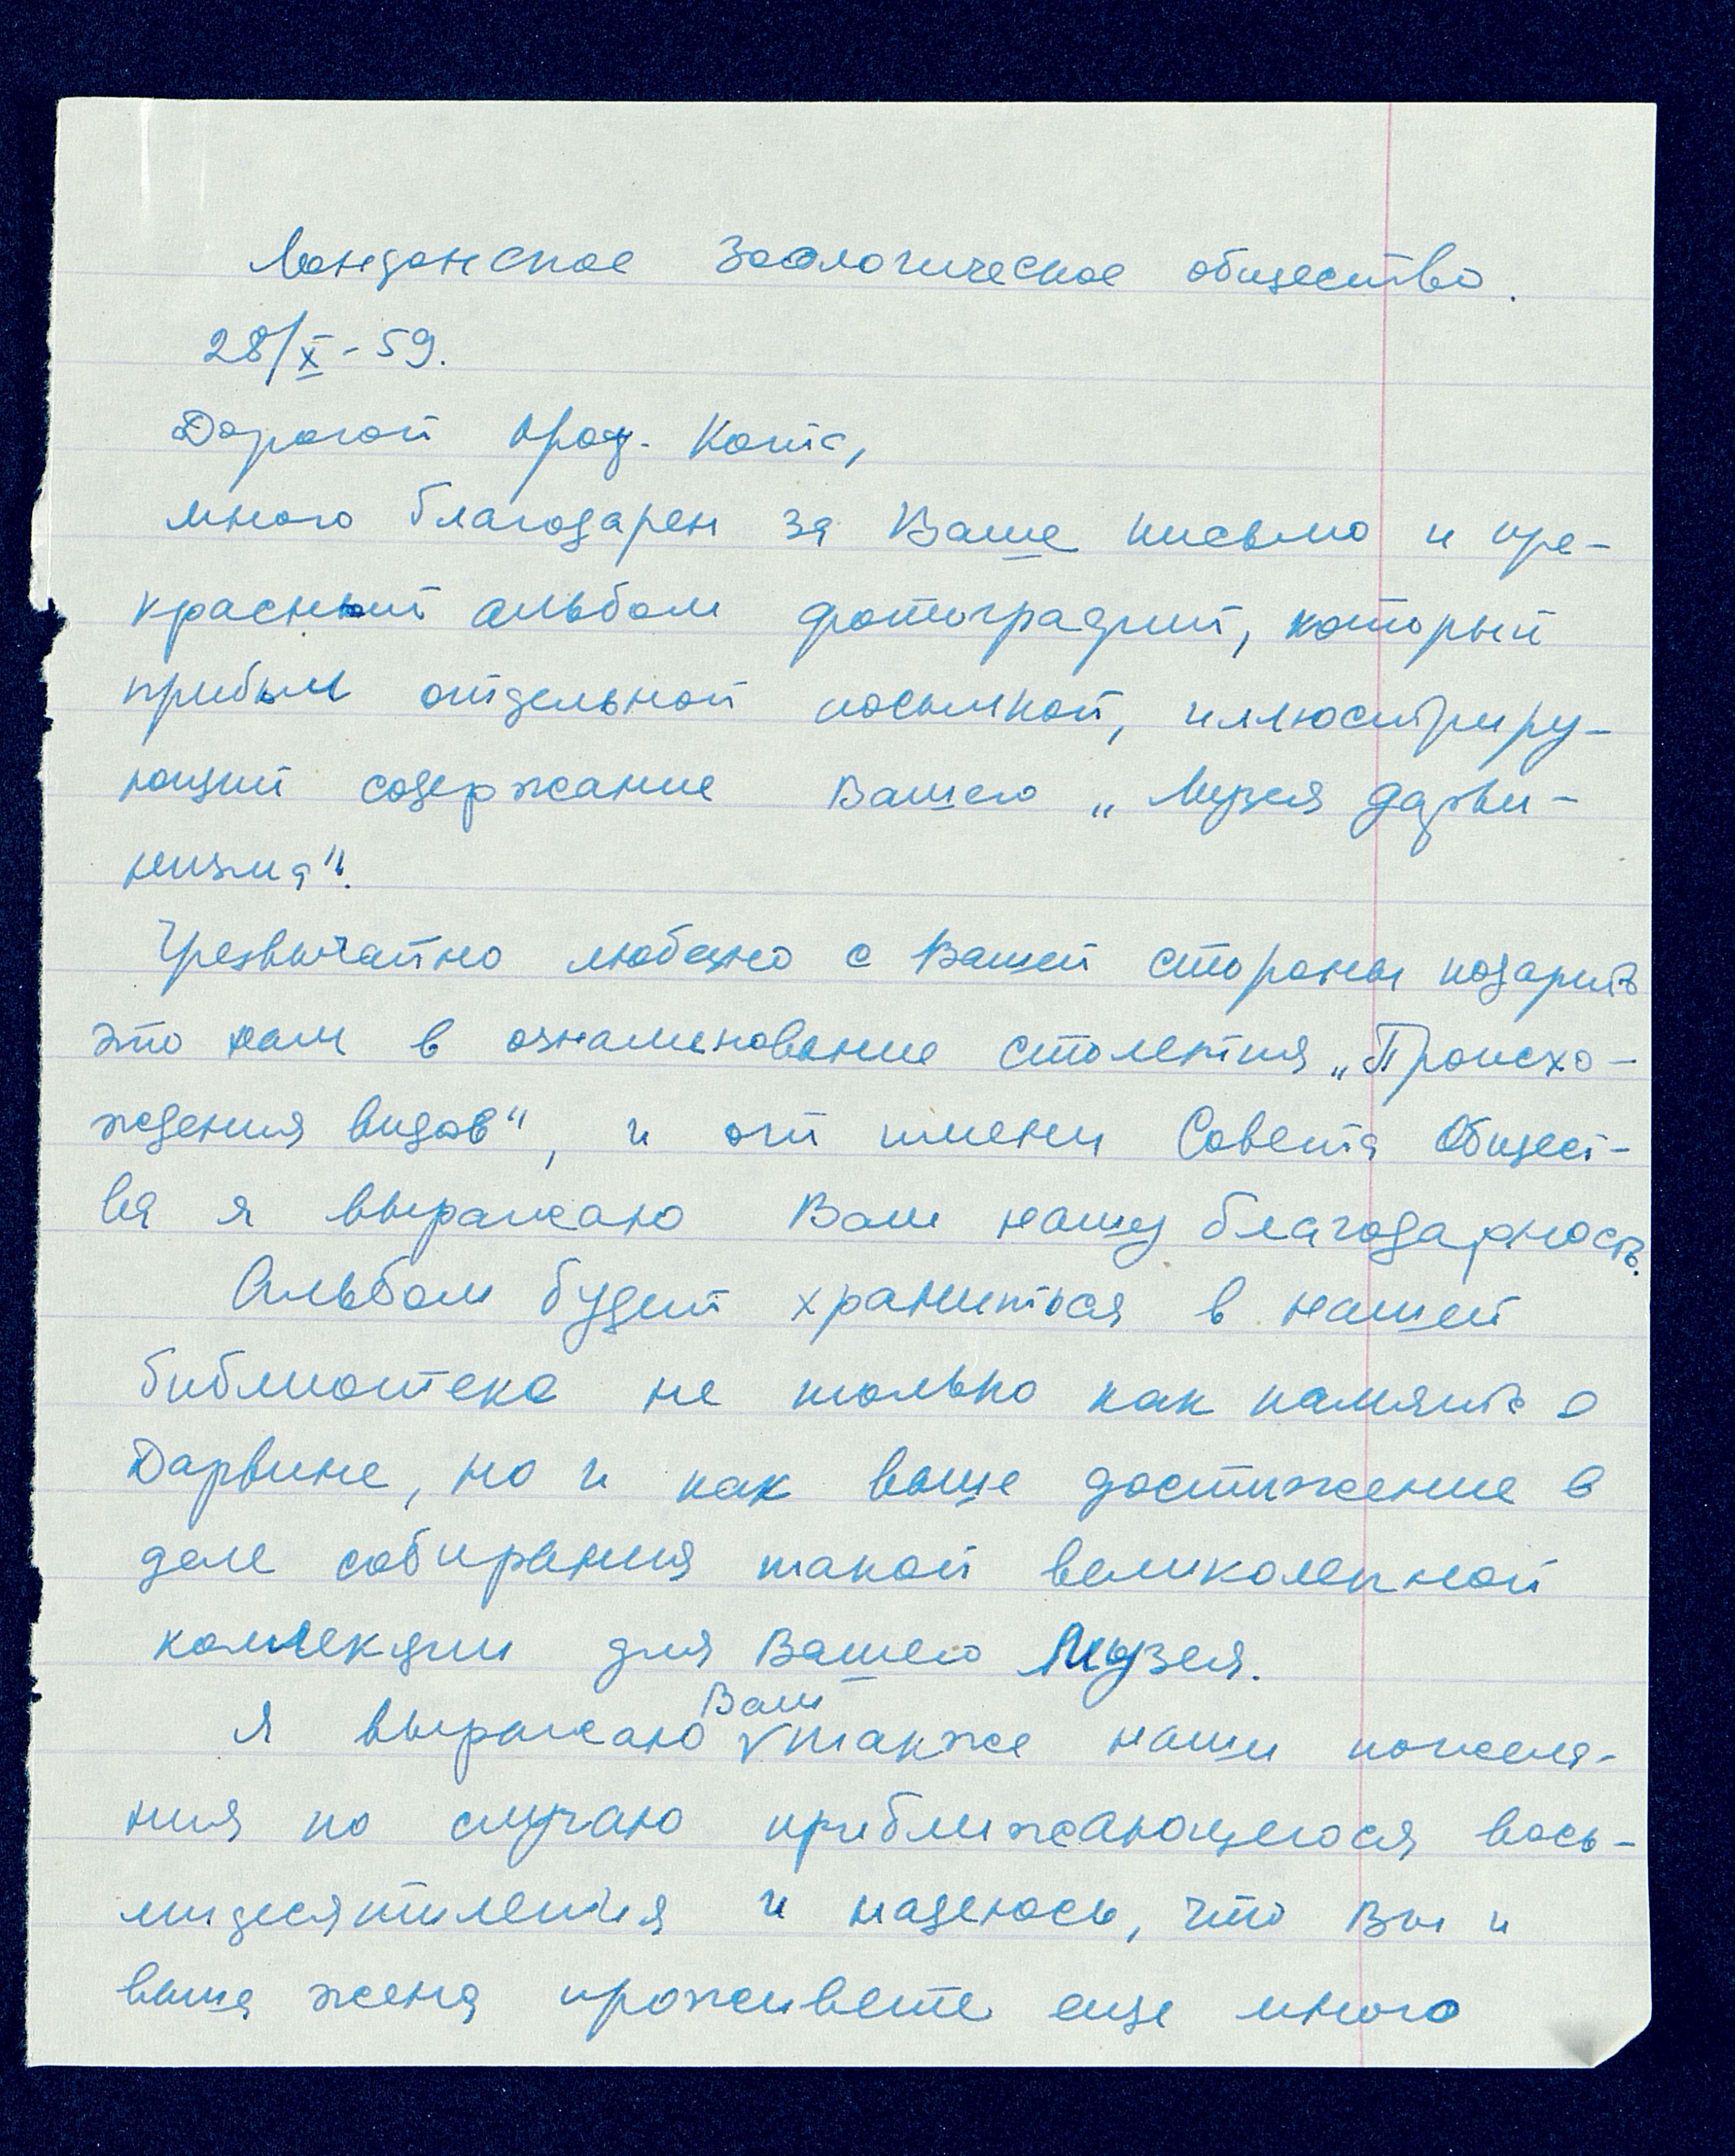 Лондонское Зоологическое общество.
28/X - 59.
Дорогой проф. Котс,
много благодарен за Ваше письмо и пре-
красный альбом фотографий, который
прибыл отдельной посылкой, иллюстриру-
ющий содержание Вашего „Музея дарви-
низма".
Чрезвычайно любезно с Вашей стороны подарить
это нам в ознаменование столетия „Происхо-
ждения видов", и от имени Совета Общест-
ва я выражаю Вам нашу благодарность.
Альбом будет храниться в нашей
библиотеке не только как память о
Дарвине, но и как ваше достижение в
деле собирания такой великолепной
коллекции для Вашего Музея.
Я выражаю Вам также наши пожела-
ния по случаю приближающегося вось-
мидесятилетия и надеюсь, что Вы и
ваша жена проживете еще много